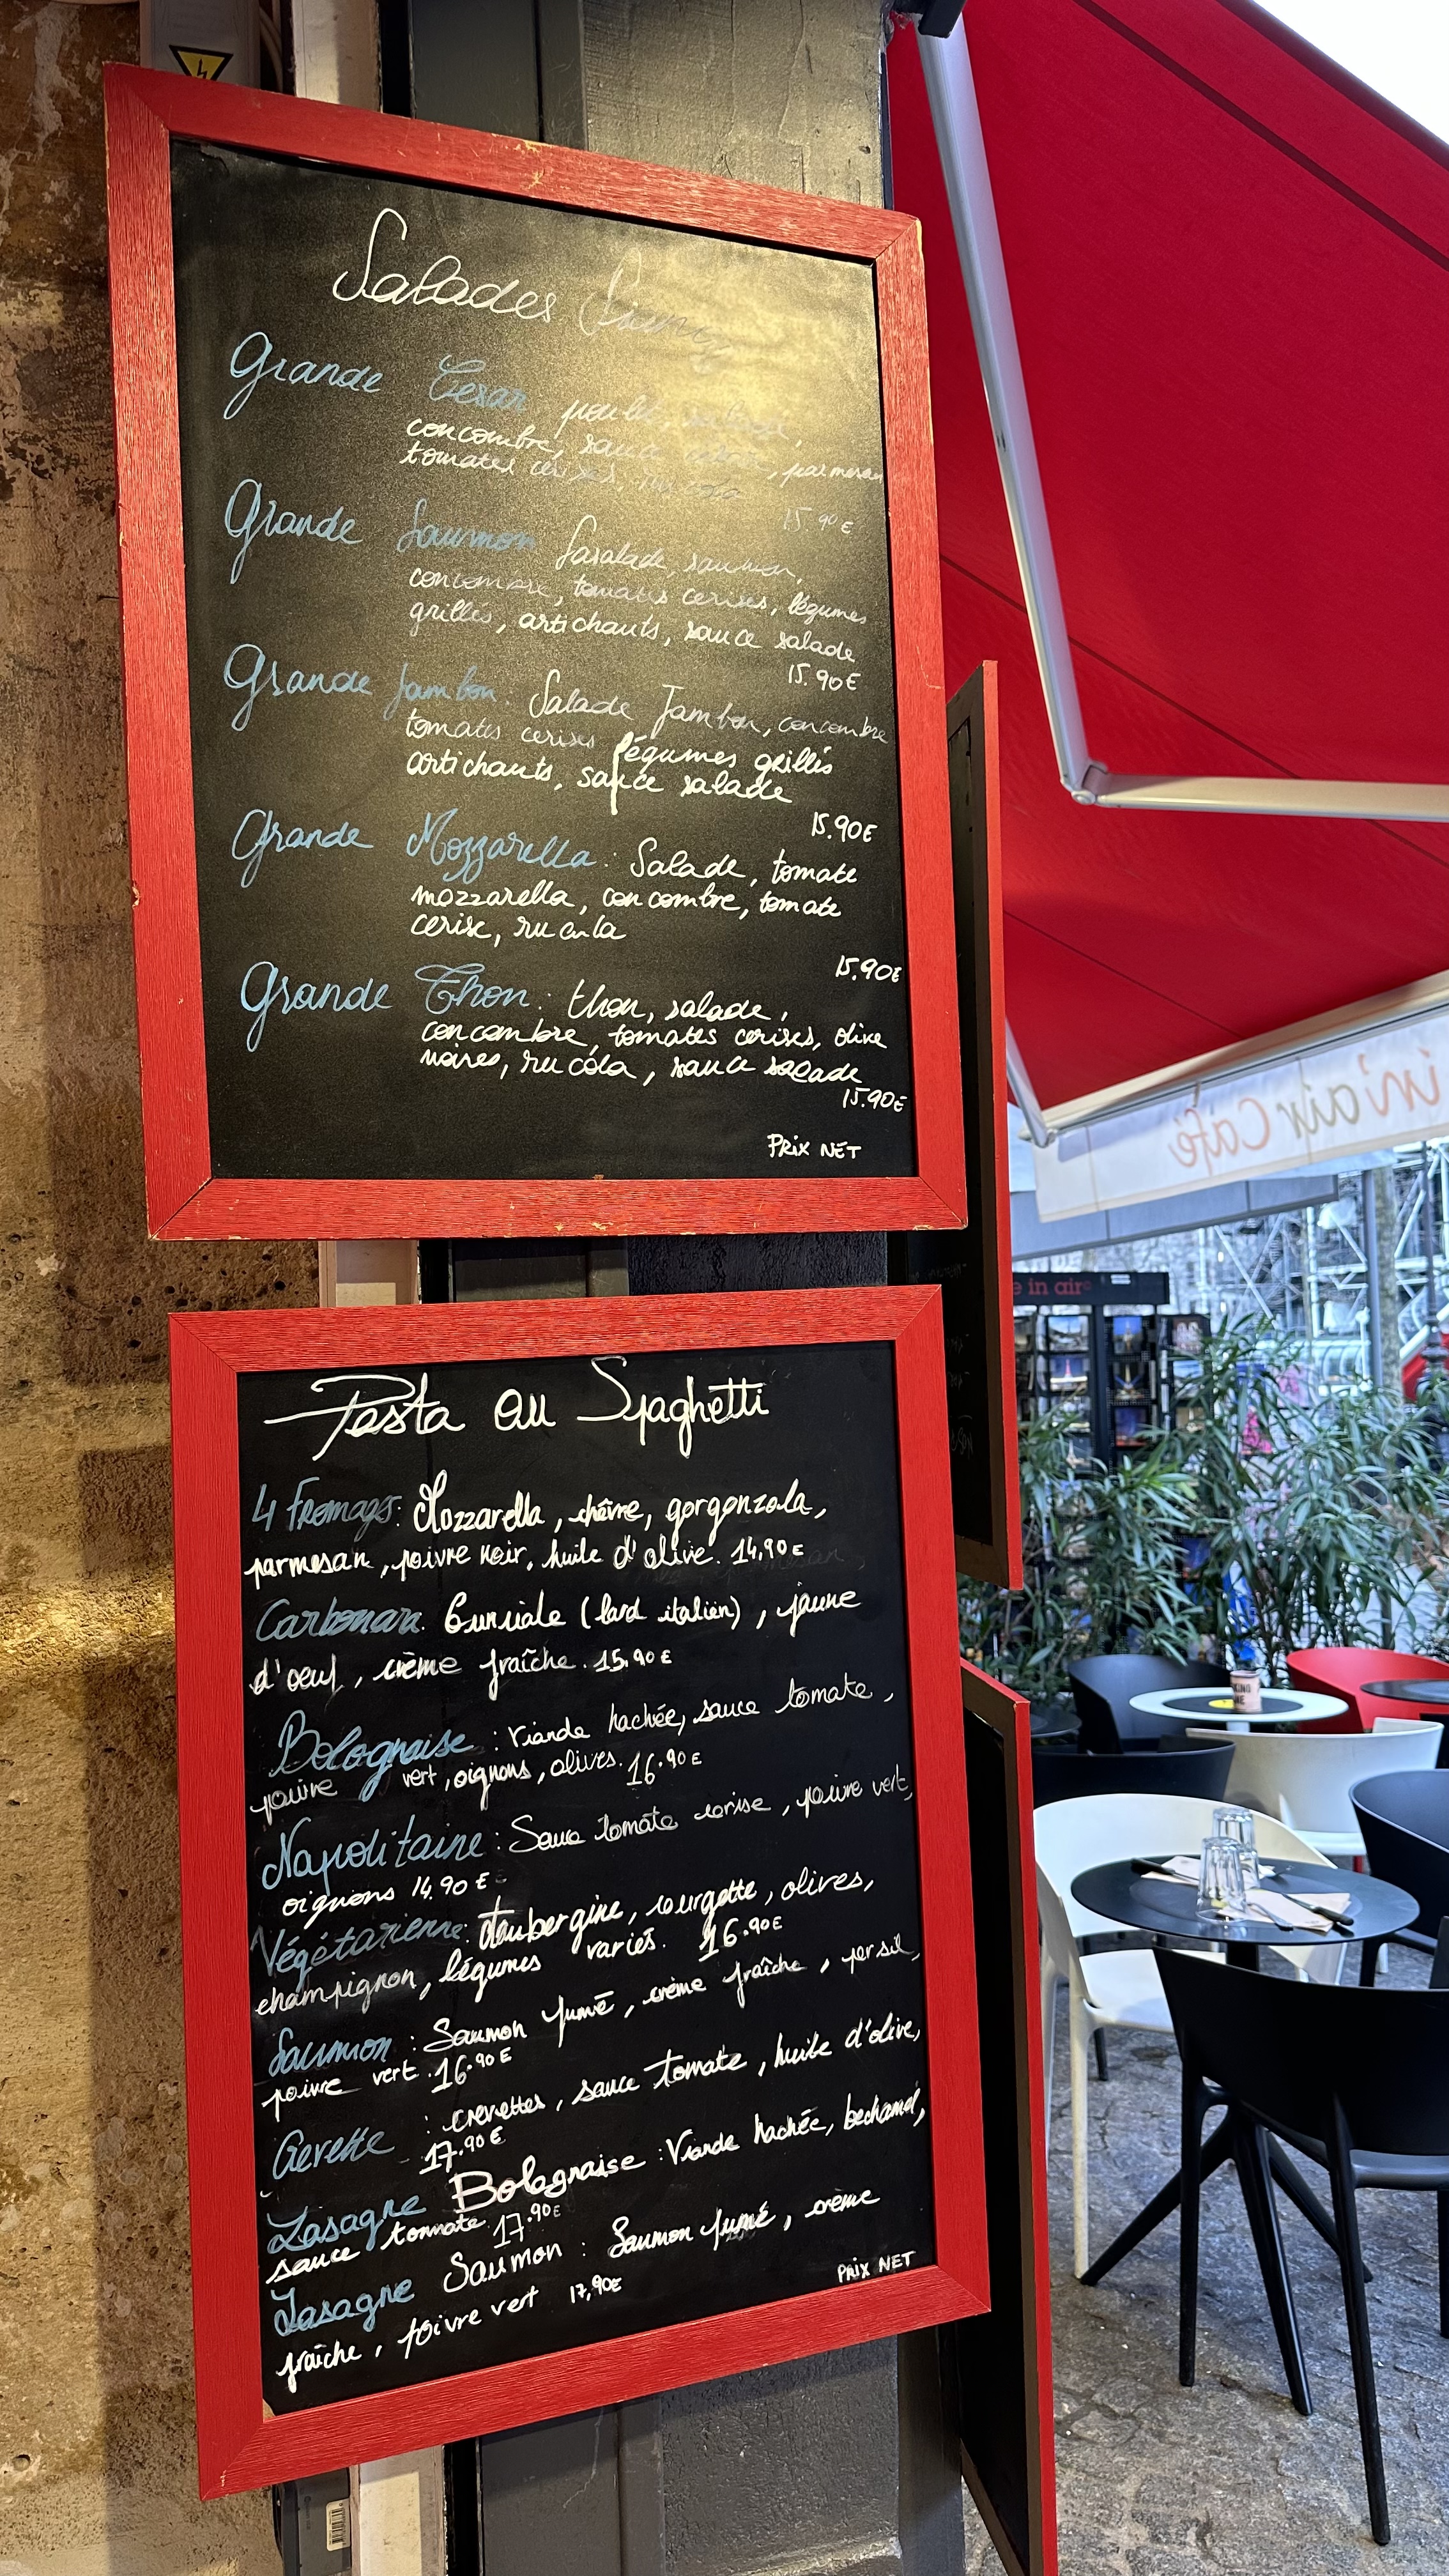 Salades
Grande Cesar poulet, salade,
concombre, sauce cesar, parmesan
tomates cerises, rucola
15.90€
Grande Saumon Sasalade, saumon,
concombre, tomates cerises, légumes
grillés, artichauts, sauce salade
15.90€
Grande Jambon: Salade Jambon, concombre
tomates cerises légumes grillés
artichauts, sauce salade
15.90€
Grande Mozzarella: Salade, tomate
mozzarella, concombre, tomate
cerise, rucula
15.90€
Grande Thon: thon, salade,
concombre, tomates cerises, olive
noires, rucóla, sauce salade
15.90€
PRIX NET
Pasta ou Spaghetti
4 Fromages: Mozzarella, chèvre, gorgonzola,
parmesan, poivre noir, huile d'olive. 14,90€
Carbonara. Gunciale (lard italien), jaune
d'oeuf, crème fraîche. 15.90€
Bolognaise: Viande hachée, sauce tomate,
poivre vert, oignons, olives. 16.90€
Napolitaine: Sauce tomate cerise, poivre vert,
oignons 14.90€
Végétarienne: Aubergine, courgette, olives,
champignon, légumes variés. 16.90€
Saumon: Saumon fumé, crème fraîche, persil,
poivre vert. 16.90€
Crevette: crevettes, sauce tomate, huile d'olive,
17.90€
Lasagne Bolognaise: Viande hachée, bechamel,
sauce tommate 17.90€
Lasagne Saumon: Saumon fumé, crème
fraîche, poivre vert 17,90€
PRIX NET
in'air Café
e in air